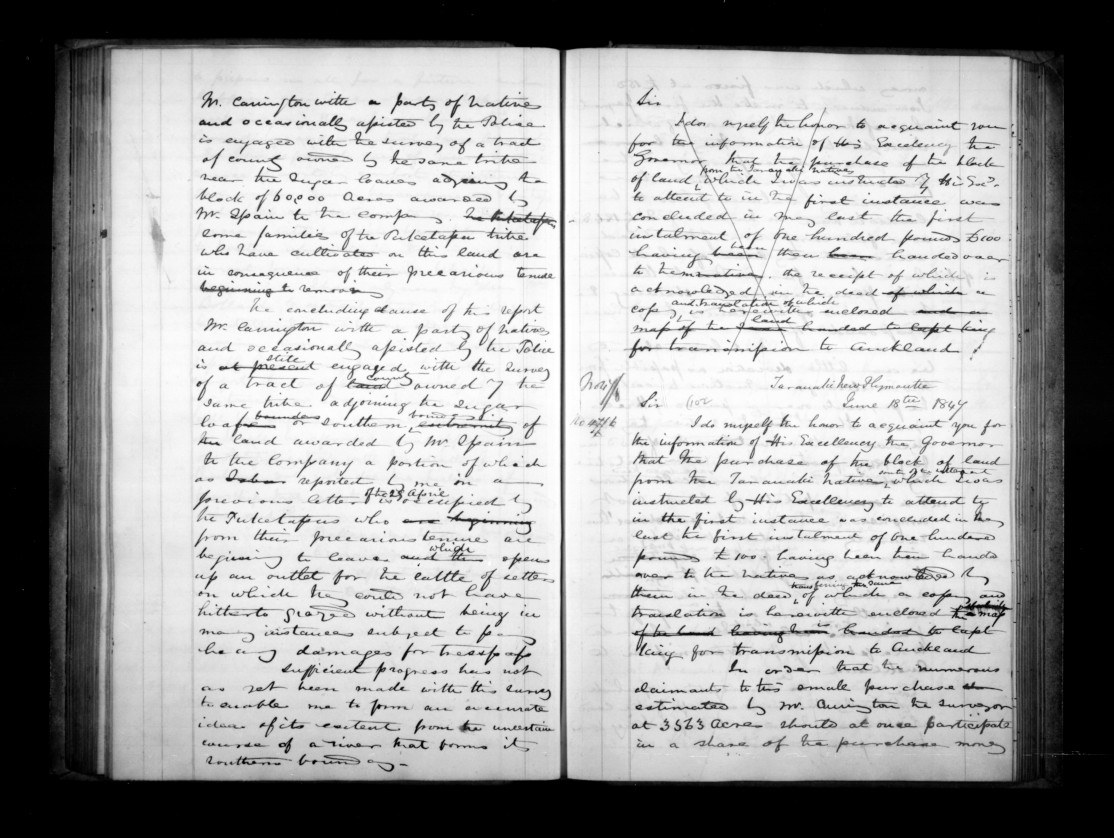 Mr. Carrington with a party of natives
and occasionally assisted by the Police
is engaged with the survey of a tract
of county owned by the same tribe
near the Sugar loaves adjoining the
block of 60,000 acres awarded by
Mr. Spain to the Company. The Puketapu
some families of the Puketapu tribe
who have cultivated on this land are
in consequence of their precarious tenure
beginning to remove in
The concluding clause of this report
Mr. Carrington with a party of natives
and occasionally assisted by the Police
still
is at present engaged with the survey
county
of a tract of land owned by the
same tribe adjoining the Sugar
boundary
loaves or southern extremity of
the land awarded by Mr. Spain
to the Company a portion of which
as reported by me in a
of the 29 April
previous letter is occupied by
the Puketapus who are beginning
from their precarious tenure are
which
begining to leave and this opens
up an outlet for the cattle of settlers
on which they could not have
hitherto grazed without being in
many instances subject to pay
heavy damages for tresspass
Sufficient progress has not
as yet been made with this survey
to enable me to form an accurate
idea of its extent from the uncertain
course of a river that forms its
southern boundary -
Sir
I do myself the honor to acquaint you
for the information of His Excellency the
Governor that the purchase of the block
from the Taranaki natives
of land, which I was instructed by His Excy.
to attend to in the first instance was
concluded in May last the first
instalment of one hundred pounds £100
been
having been then been handed over
to the natives. the receipt of which is
acknowledged in the deed of which a
and translation of which
copy is herewith inclosed and a
land
map of the land handed to Capt King
for transmission to Auckland
Taranaki New Plymouth
June 18th 1847
Sir
I do myself the honor to acquaint you for
the information of His Excellency the Governor
that the purchase of the block of land
from the Taranaki Natives, which I was
instructed by His Excellency to attend to
in the first instance was concluded in May
last the first instalment of one hundred
pounds £100. having been then handed
over to the natives as acknowledged by
transferring the same
them in the deed, of which a copy and
translation is herewith enclosed the map
of the land having been handed to Capt
King for transmission to Auckland
In order that the numerous
claimants to this small purchase
estimated by Mr. Carrington the surveyor
at 3563 Acres should at once participate
in a share of the purchase money